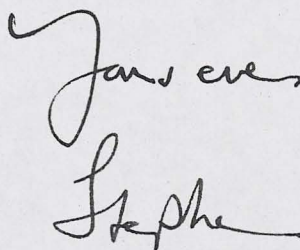 Yours ever
Stephe